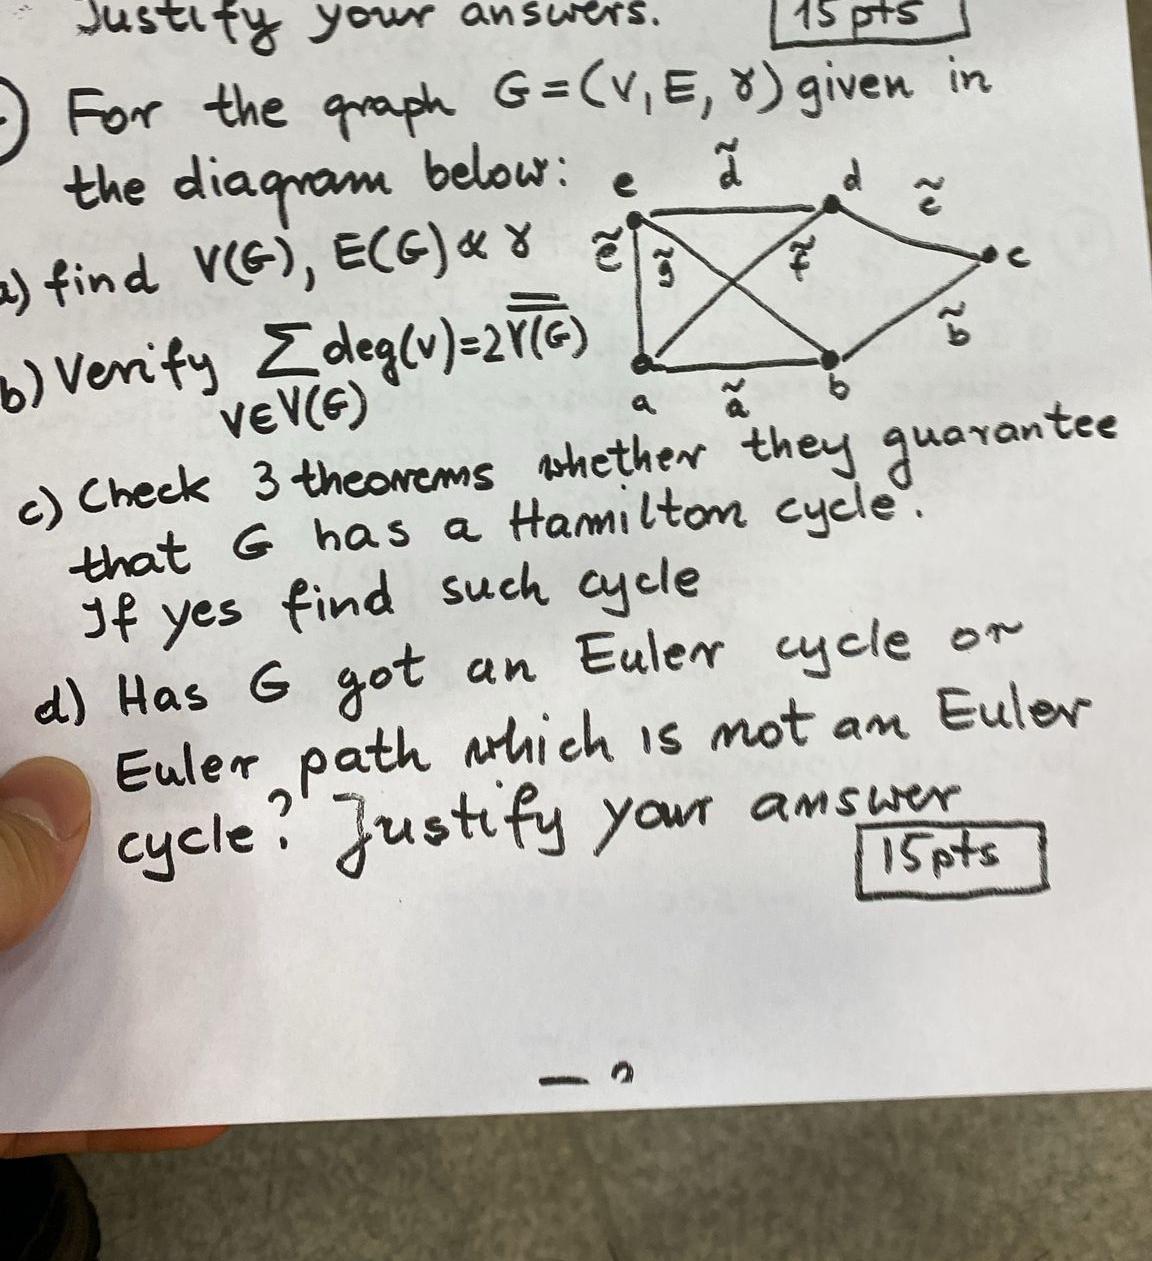 Justify your answers. 15 pts
For the graph G=(V, E, γ) given in
the diagram below:
e d̃ d c̃
a) find V(G), E(G) & γ
ẽ g̃ f̃ c
b) Verify ∑ deg(v)=2
b̃
v∈V(G)
a ã b
c) Check 3 theorems whether they guarantee
that G has a Hamilton cycle.
If yes find such cycle
d) Has G got an Euler cycle or
Euler path which is not an Euler
cycle? Justify your answer
15pts